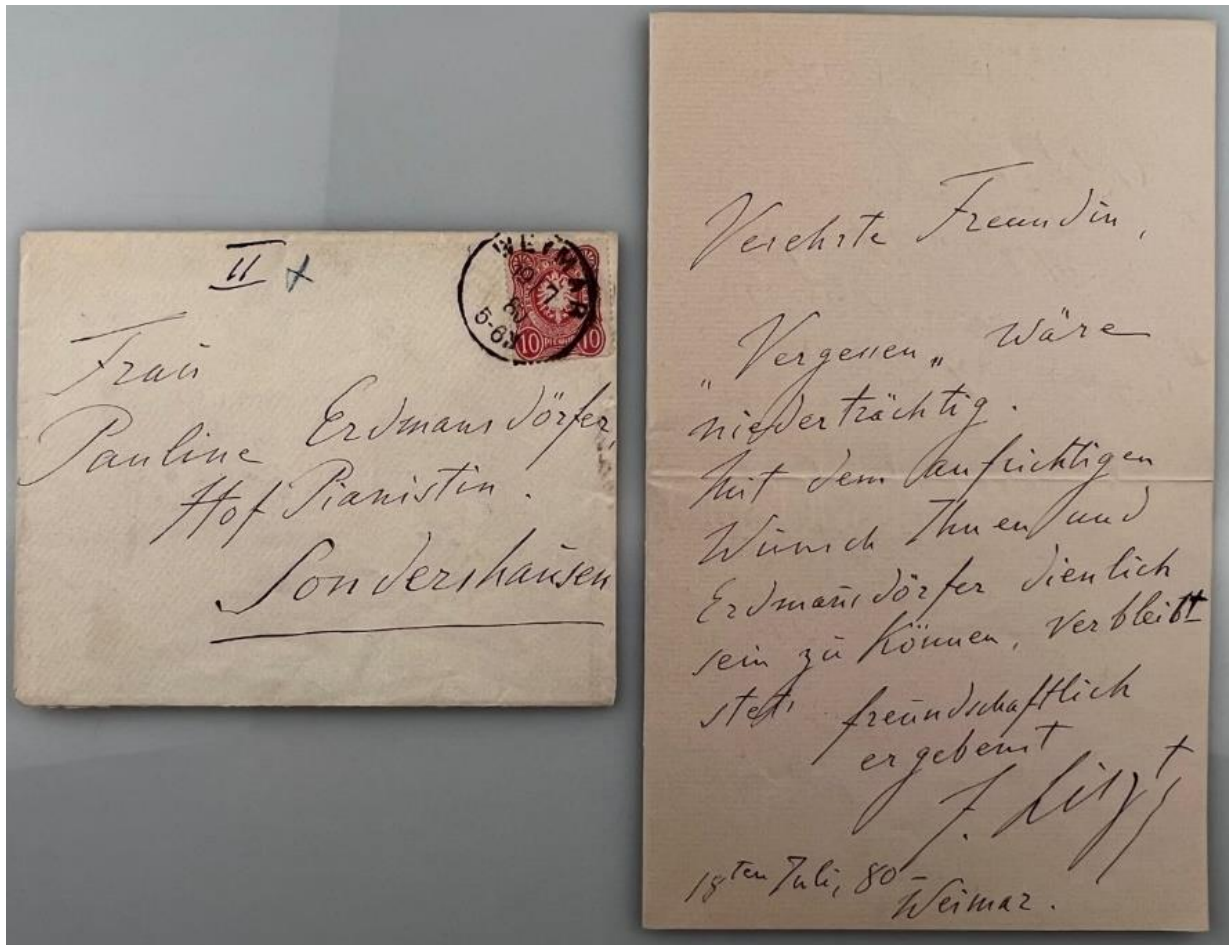 II x
WEIMAR
19 7
80
5-6N
10 PFENNIG 10
Frau
Pauline Erdmansdörfer,
Hof Pianistin.
Sondershausen
Verehrte Freundin,
"Vergessen" wäre
niederträchtig.
Mit dem aufrichtigen
Wunsch Ihnen und
Erdmansdörfer dienlich
sein zu können, verbleibt
stets freundschaftlich
ergebenst
F. Liszt
18ten Juli, 80 –
Weimar.